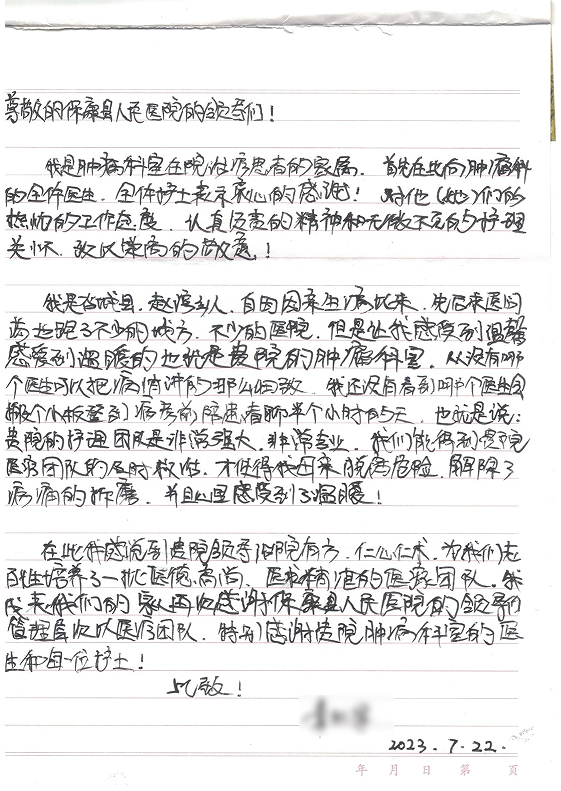 尊敬的保康县人民医院的领导们！
我是肿瘤科室住院治病患者的家属。首先在此向肿瘤科
的全体医生，全体护士表示衷心的感谢！对他(她)们的
热忱的工作态度，认真负责的精神和无微不至的护理
关怀，致以崇高的敬意！
我是谷城县，赵湾乡人，自因生病以来，先后来医问
药也跑了不少的地方，不少的医院，但是让我感受到温馨
感受到温暖的也就是贵院的肿瘤科室，从没有哪
个医生可以把病情讲的那么细致，我还没有看到哪个医生会
搬个小板凳到病房前陪患者聊半个小时的天，也就是说：
贵院的护理团队是非常强大，非常专业，我们能得到贵院
医疗团队的及时救治，才使得我脱离危险，解除了
病痛的折磨，并且心里感受到了温暖！
在此我感觉到贵院领导治院有方，仁心仁术，为我们老
百姓培养了一批医德高尚，医术精湛的医疗团队。我
代表我们的家人再次感谢保康县人民医院的领导的
管理层次以医疗团队，特别感谢贵院肿瘤科室的医
生和每一位护士！
此致！
2023.7.22.
年 月 日 第 页